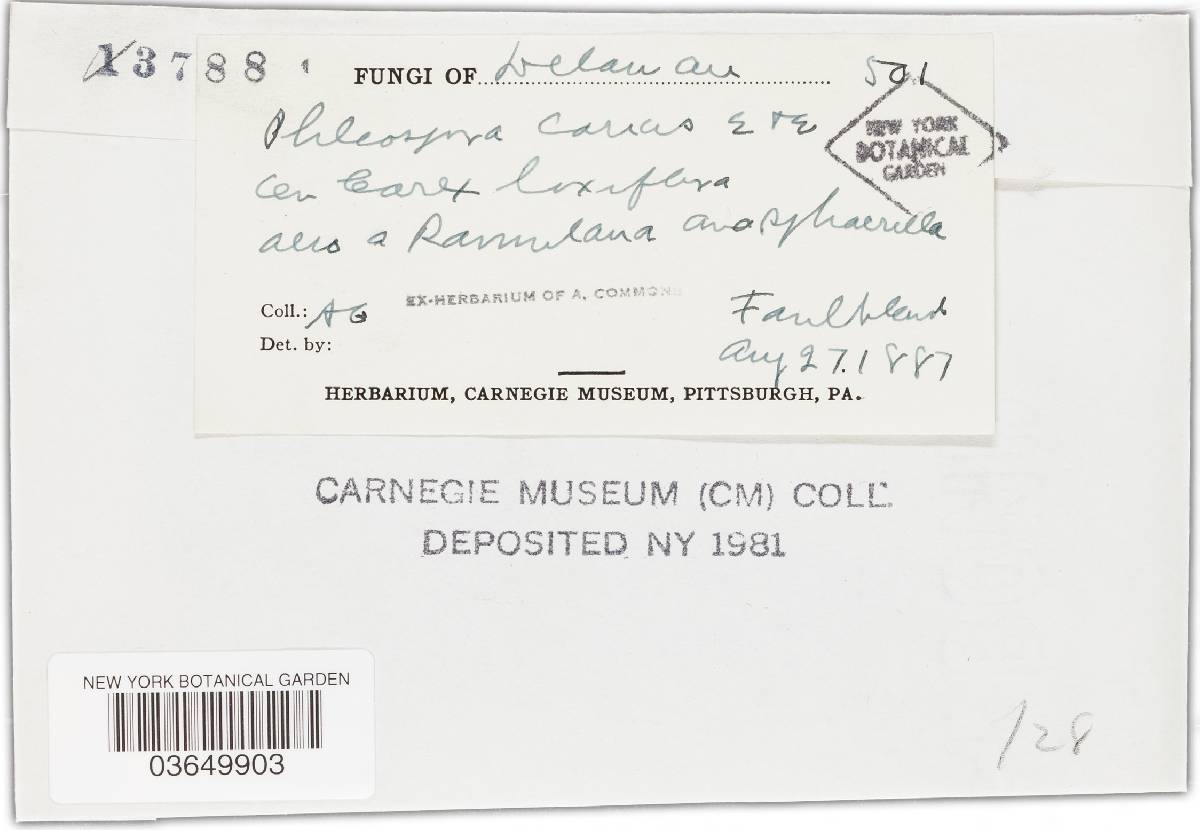 13788
FUNGI OF Delaware 501
Phleospora caricis E & E
on Carex laxiflora
also a Ramularia and Sphaerella
NEW YORK
BOTANICAL
GARDEN
Coll.: AC
EX-HERBARIUM OF A. COMMONS
Faulkland
Det. by:
Aug 27. 1887
HERBARIUM, CARNEGIE MUSEUM, PITTSBURGH, PA.
CARNEGIE MUSEUM (CM) COLL.
DEPOSITED NY 1981
NEW YORK BOTANICAL GARDEN
03649903
128